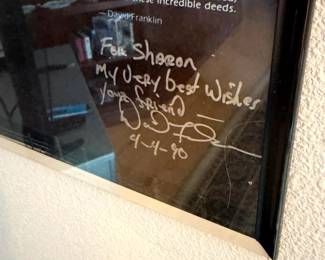 these incredible deeds.
—David Franklin
For Sharon
My very best Wishes
your friend
4-4-90